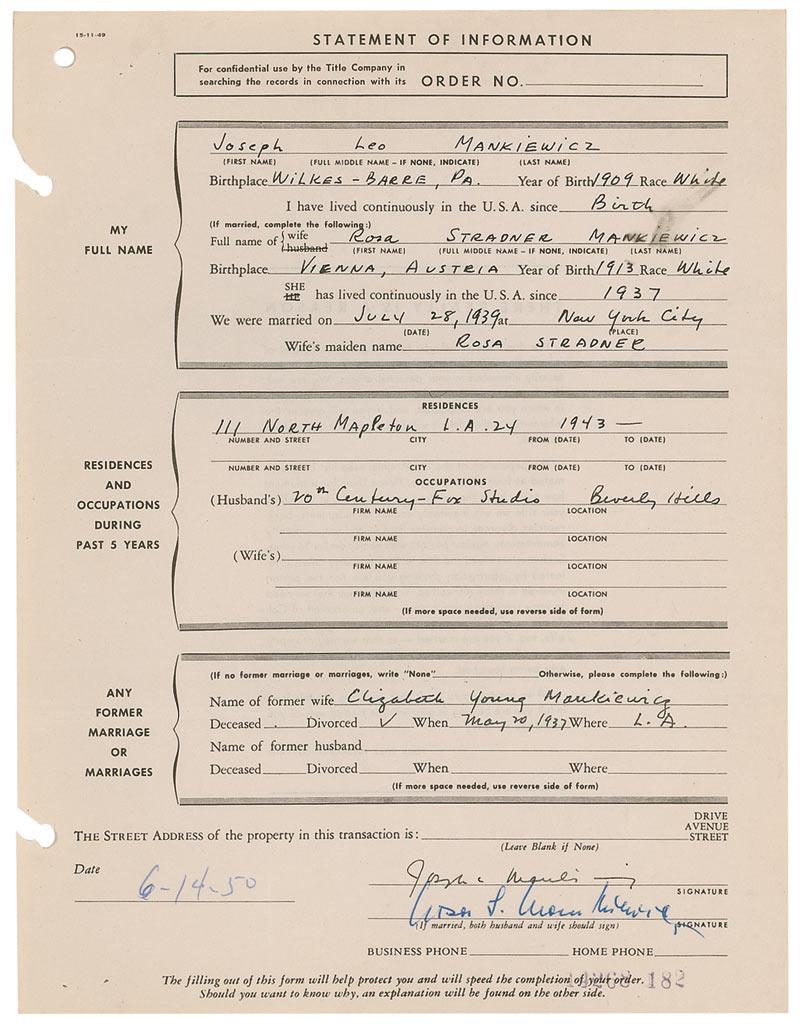 15-11-49
STATEMENT OF INFORMATION
For confidential use by the Title Company in
searching the records in connection with its ORDER NO.
MY
FULL NAME
Joseph Leo MANKIEWICZ
(FIRST NAME) (FULL MIDDLE NAME – IF NONE, INDICATE) (LAST NAME)
Birthplace WILKES-BARRE, PA. Year of Birth 1909 Race White
I have lived continuously in the U. S. A. since Birth
(If married, complete the following:)
Full name of { wife husband Rosa STRADNER MANKIEWICZ
(FIRST NAME) (FULL MIDDLE NAME – IF NONE, INDICATE) (LAST NAME)
Birthplace VIENNA, AUSTRIA Year of Birth 1913 Race White
SHE
HE has lived continuously in the U. S. A. since 1937
We were married on JULY 28, 1939 at New York City
(DATE) (PLACE)
Wife's maiden name ROSA STRADNER
RESIDENCES
AND
OCCUPATIONS
DURING
PAST 5 YEARS
RESIDENCES
111 NORTH Mapleton L.A. 24 1943 —
NUMBER AND STREET CITY FROM (DATE) TO (DATE)
NUMBER AND STREET CITY FROM (DATE) TO (DATE)
OCCUPATIONS
(Husband's) 20th Century-Fox Studio Beverly Hills
FIRM NAME LOCATION
FIRM NAME LOCATION
(Wife's)
FIRM NAME LOCATION
FIRM NAME LOCATION
(If more space needed, use reverse side of form)
ANY
FORMER
MARRIAGE
OR
MARRIAGES
(If no former marriage or marriages, write "None" Otherwise, please complete the following:)
Name of former wife Elizabeth Young Mankiewicz
Deceased Divorced ✓ When May 20, 1937 Where L.A.
Name of former husband
Deceased Divorced When Where
(If more space needed, use reverse side of form)
THE STREET ADDRESS of the property in this transaction is: DRIVE
AVENUE
STREET
(Leave Blank if None)
Date 6-14-50
SIGNATURE
Rosa S. Mankiewicz SIGNATURE
(If married, both husband and wife should sign)
BUSINESS PHONE HOME PHONE
The filling out of this form will help protect you and will speed the completion of your order.
Should you want to know why, an explanation will be found on the other side.
182